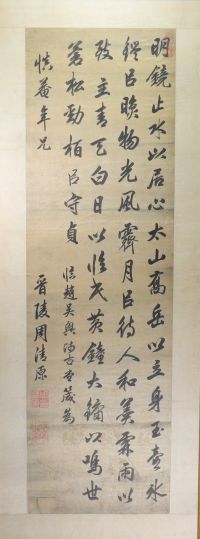 明鏡止水以居心太山高岳以立身玉壺冰
以晙物光風霽月以待人和羹霖雨以
致主青天白日以臨民黃鐘大鏞以鳴世
蒼松勁柏以守貞
臨趙吳興
慎菴年兄
晉陵周清原